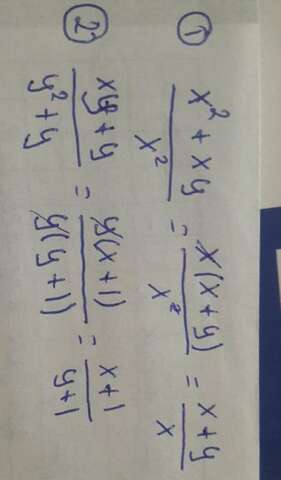 ① x² + xy / x² = x(x + y) / x² = x + y / x
② xy + y / y² + y = y(x + 1) / y(y + 1) = x + 1 / y + 1